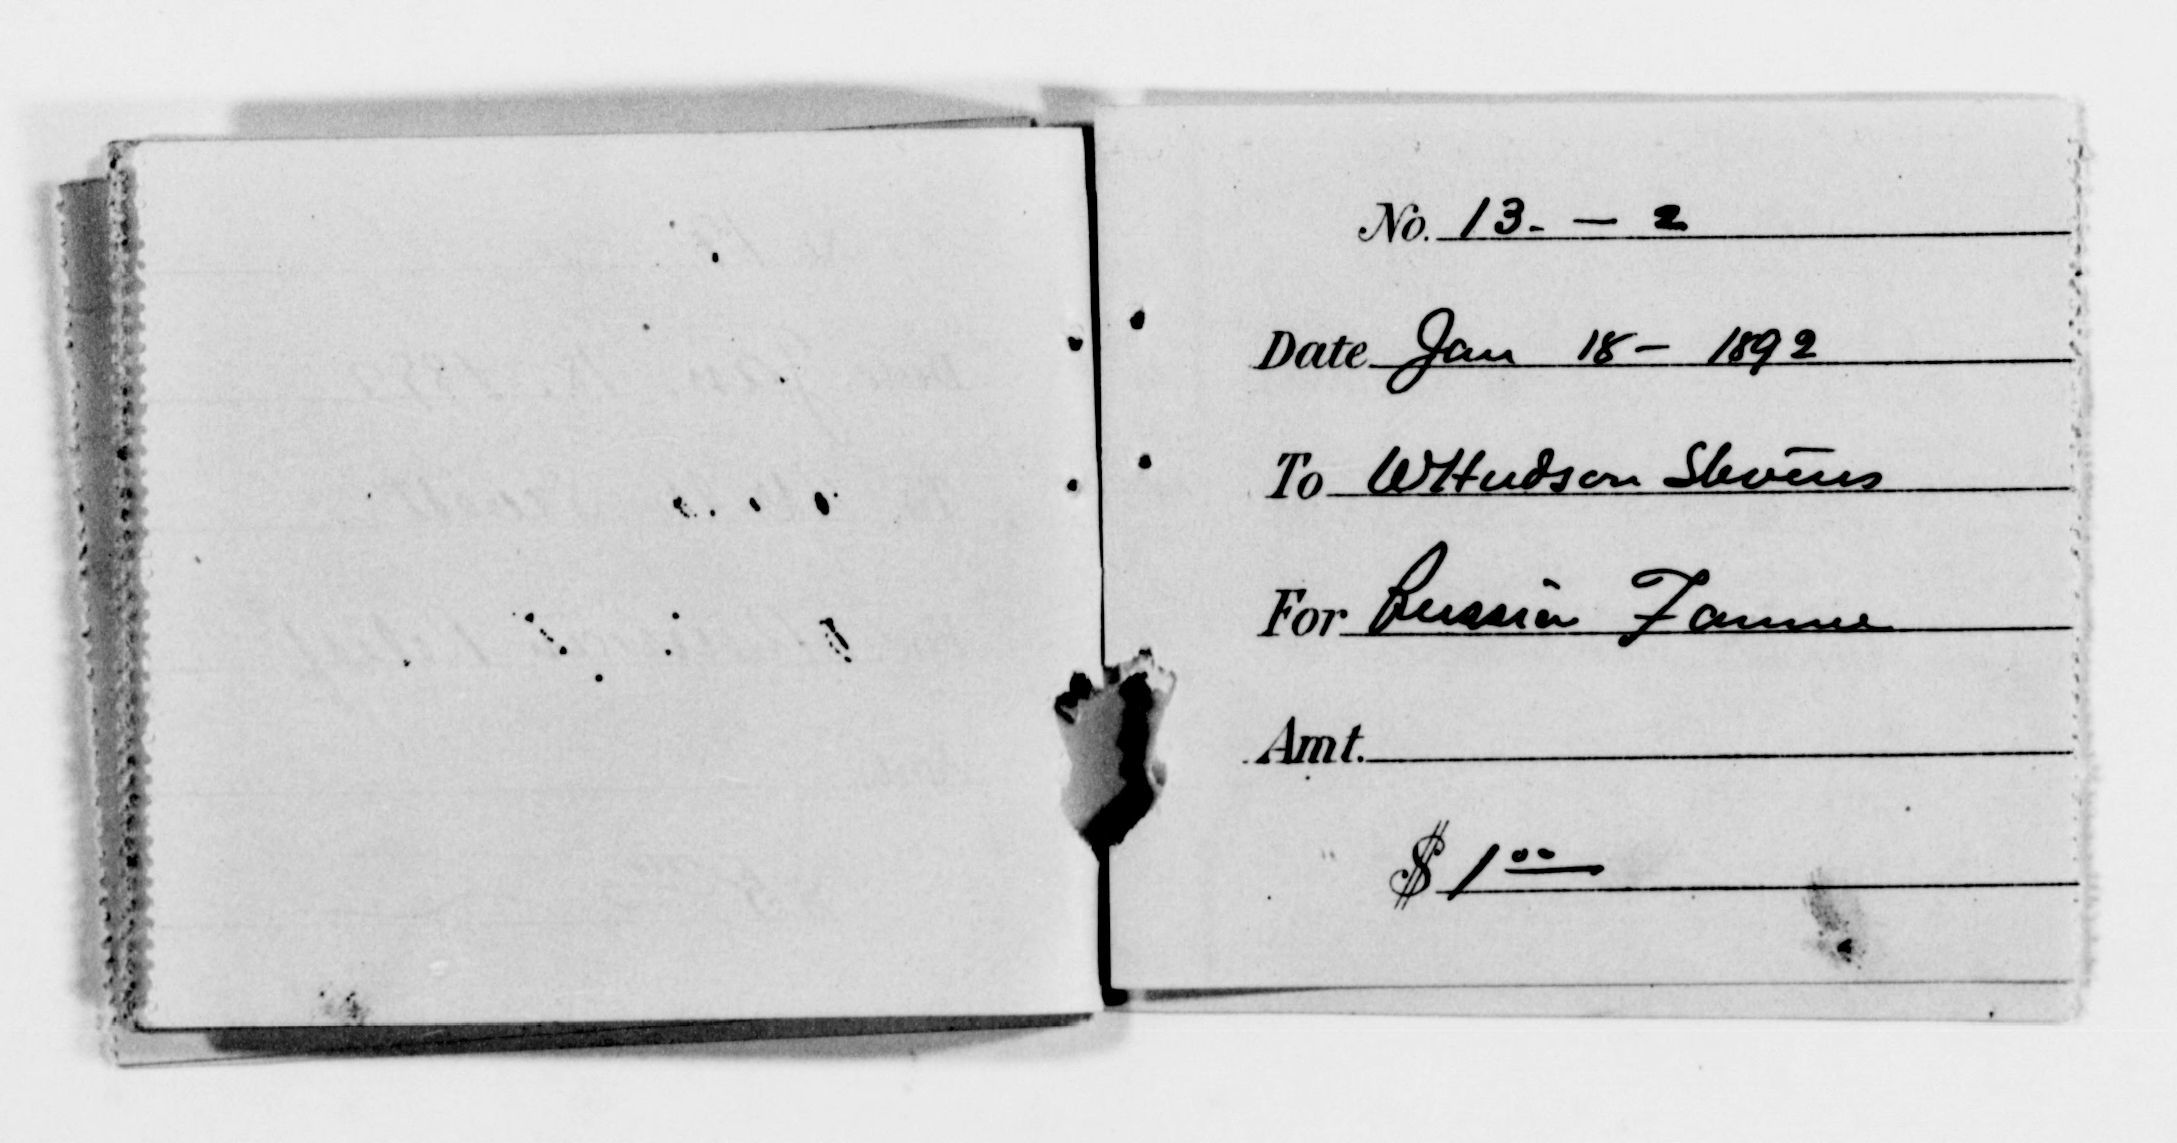 No. 13. – 2
Date Jan 18 – 1892
To W Hudson Stevens
For Russian Famine
Amt.
$ 1 00